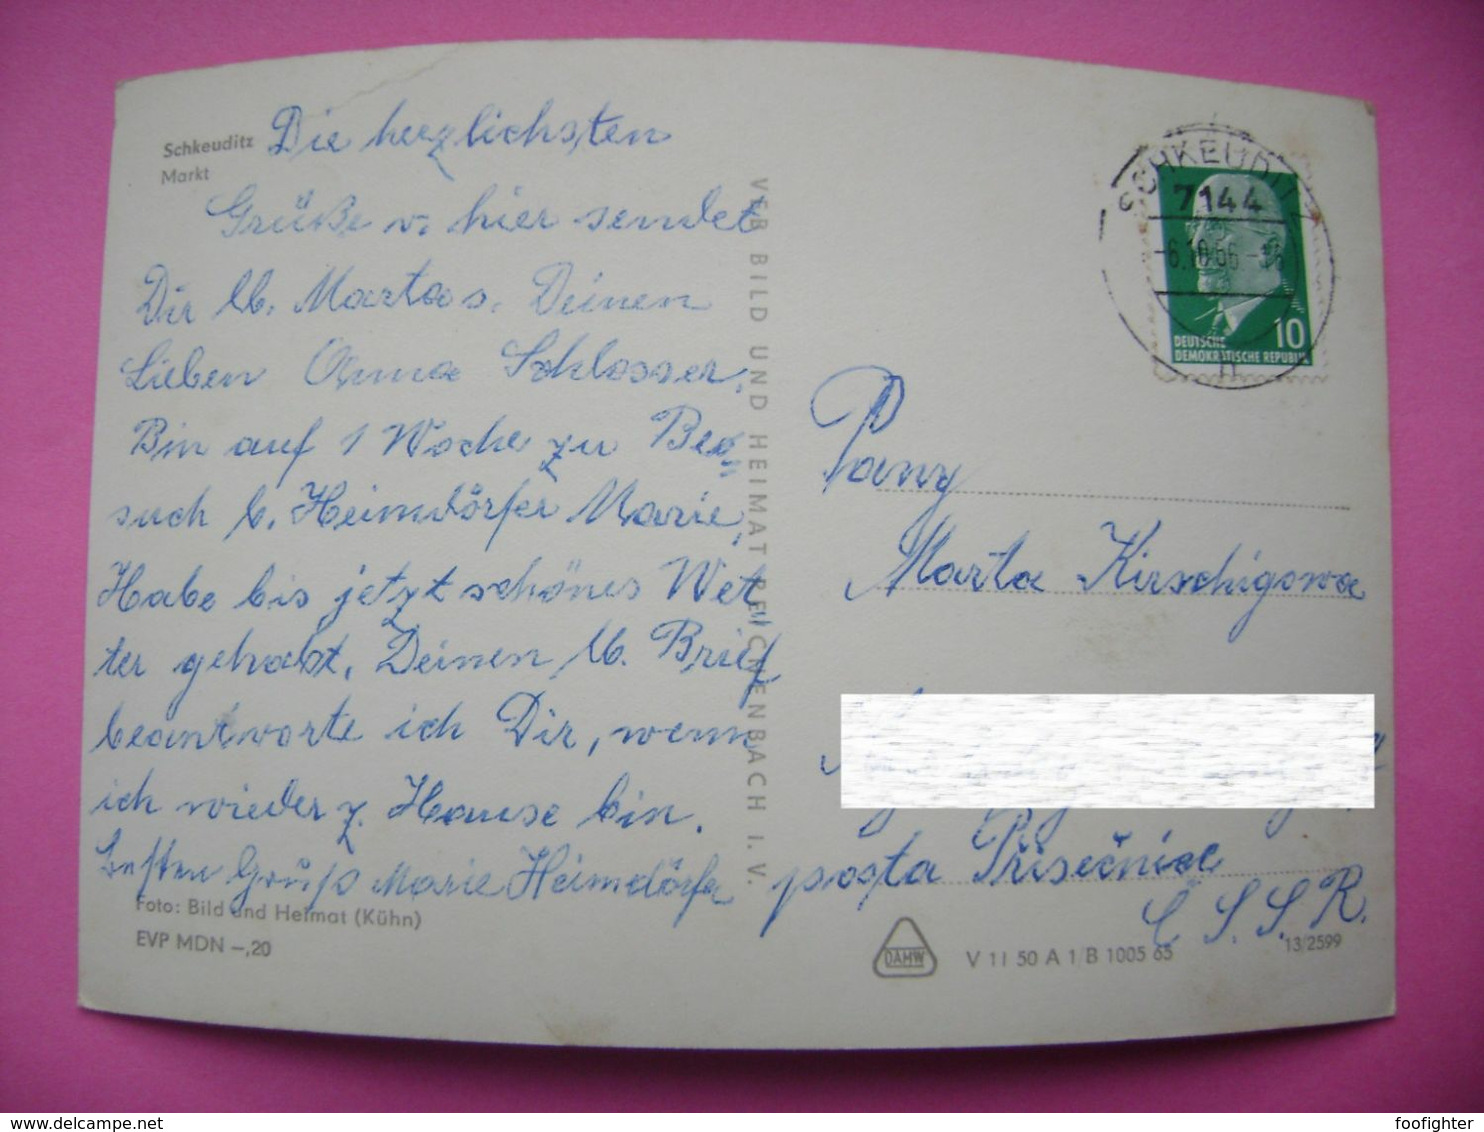 Schkeuditz
Markt
Die herzlichsten
Grüße v. hier sendet
Dir lb. Marta s. Deinen
Lieben Anna Schlosser.
Bin auf 1 Woche zu Be=
such b. Heimdörfer Marie,
Habe bis jetzt schönes Wet"
ter gehabt. Deinen lb. Brief
beantworte ich Dir, wenn
ich wieder z. Hause bin.
Besten Gruß Marie Heimdörfer
Foto: Bild und Heimat (Kühn)
EVP MDN –,20
VEB BILD UND HEIMAT REICHENBACH I. V.
SCHKEUDITZ
7144
-6.10.66-
10
DEUTSCHE
DEMOKRATISCHE REPUBLIK
Pany
Marta Kirschigowa
posta Přisečnice
Č. S. S. R.
DAHW
V 11 50 A 1/B 1005 65
13/2599
foofighter